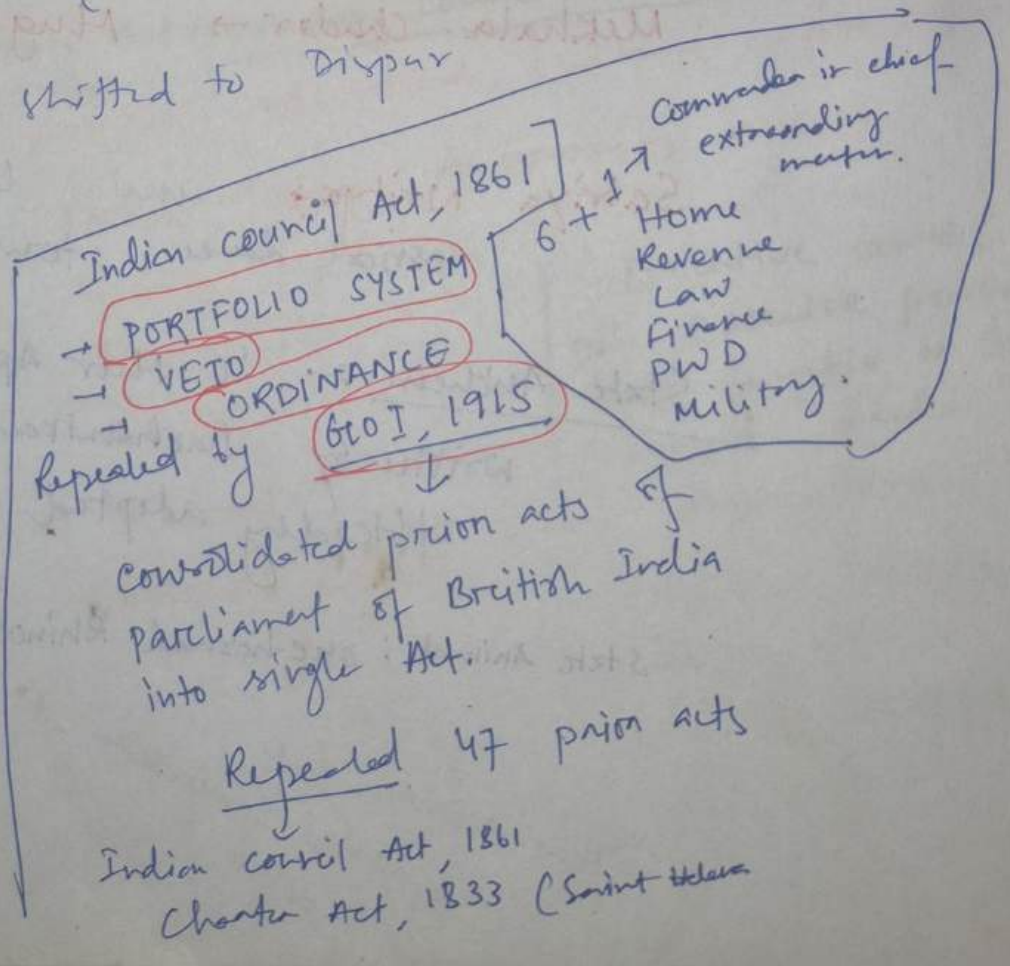 Shifted to Dispur
Indian Council Act, 1861
→ PORTFOLIO SYSTEM
→ VETO
→ ORDINANCE
Repealed by GOI, 1915
6 + 1 → Commander in chief
extraordinary
member.
Home
Revenue
Law
Finance
PWD
Military.
↓
consolidated prior acts of
parliament of British India
into single Act.
Repealed 47 prior acts
↓
Indian Council Act, 1861
Charter Act, 1833 (Saint Helena